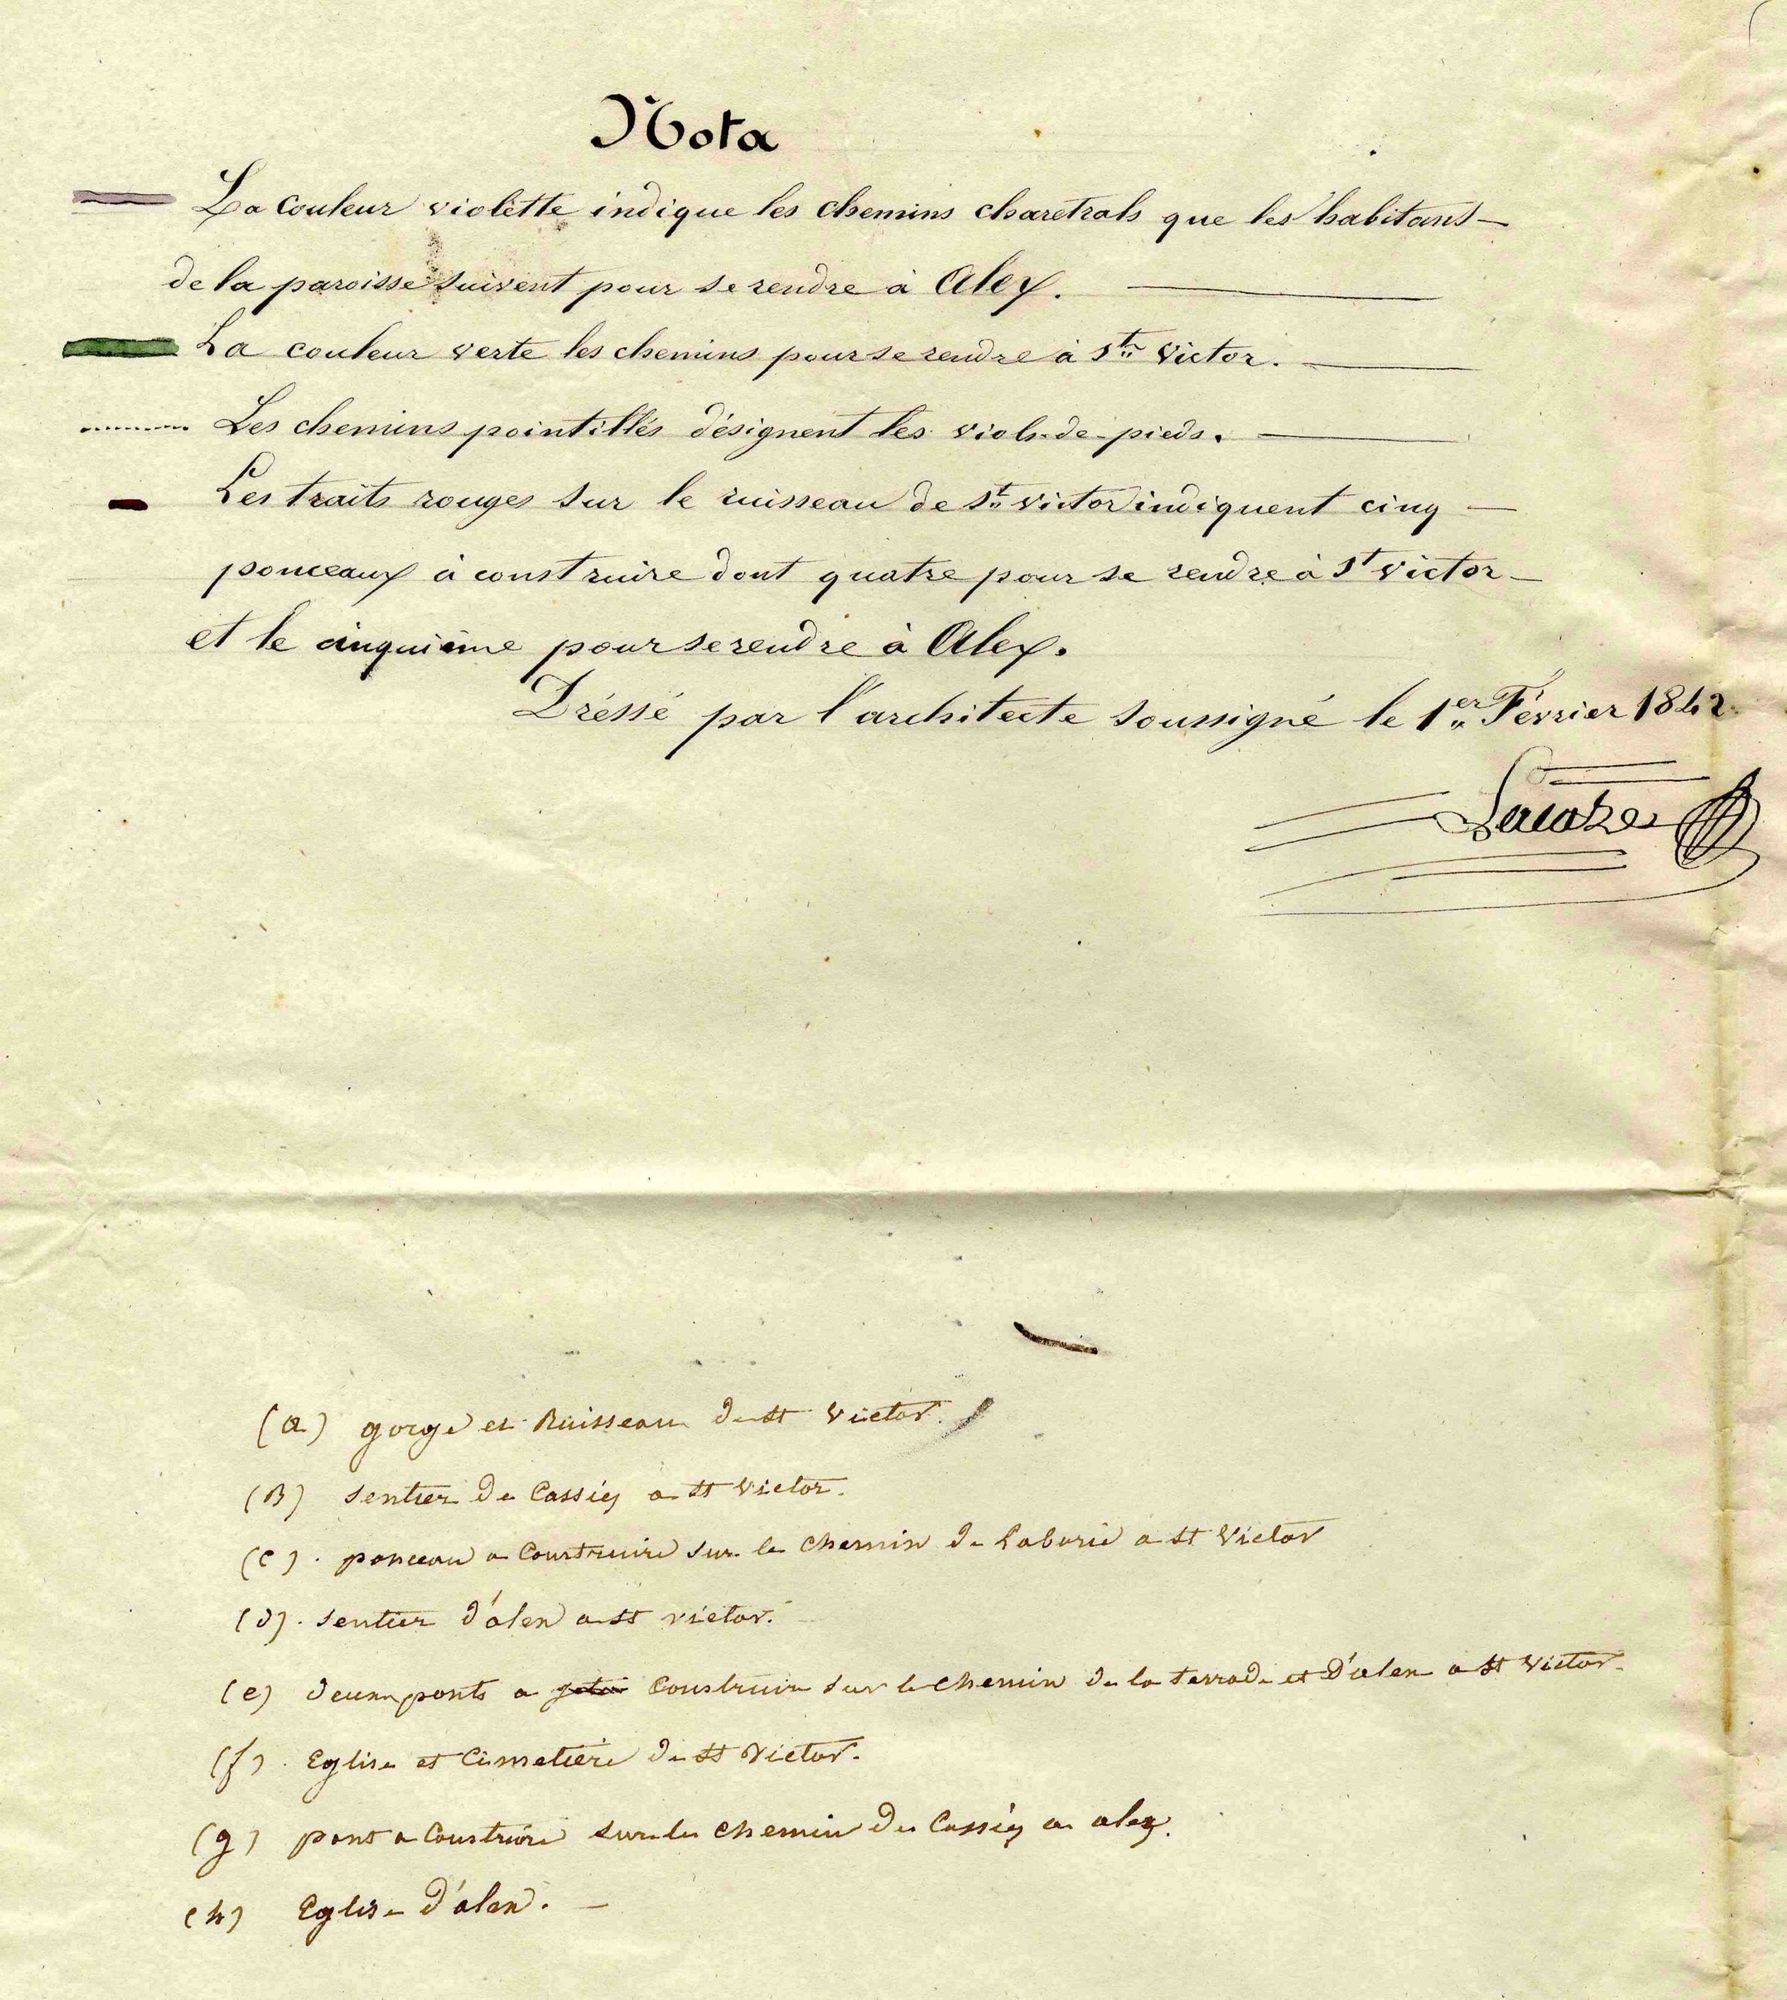 Nota
La couleur violètte indique les chemins charetrals que les habitans
de la paroisse suivent pour se rendre à Alex.
La couleur verte les chemins pour se rendre à St Victor.
Les chemins pointillés désignent les viols-de-pieds.
Les traits rouges sur le ruisseau de St Victor indiquent cinq
ponceaux à construire dont quatre pour se rendre à St Victor
et le cinquième pour se rendre à Alex.
Dréssé par l'architecte soussigné le 1er Février 1842.
(a) gorge et Ruisseau de St Victor.
(B) sentier de Cassiej a St Victor.
(c) ponceau a Construire sur le Chemin de Laborie a St Victor
(d) sentier d'alex a St victor.
(e) deux ponts a Construire sur le Chemin de la terrade et D'alex a St Victor.
(f) Eglise et Cimetière de St Victor.
(g) pont a Construire sur le Chemin de Cassiej a alex.
(h) Eglise d'alex.